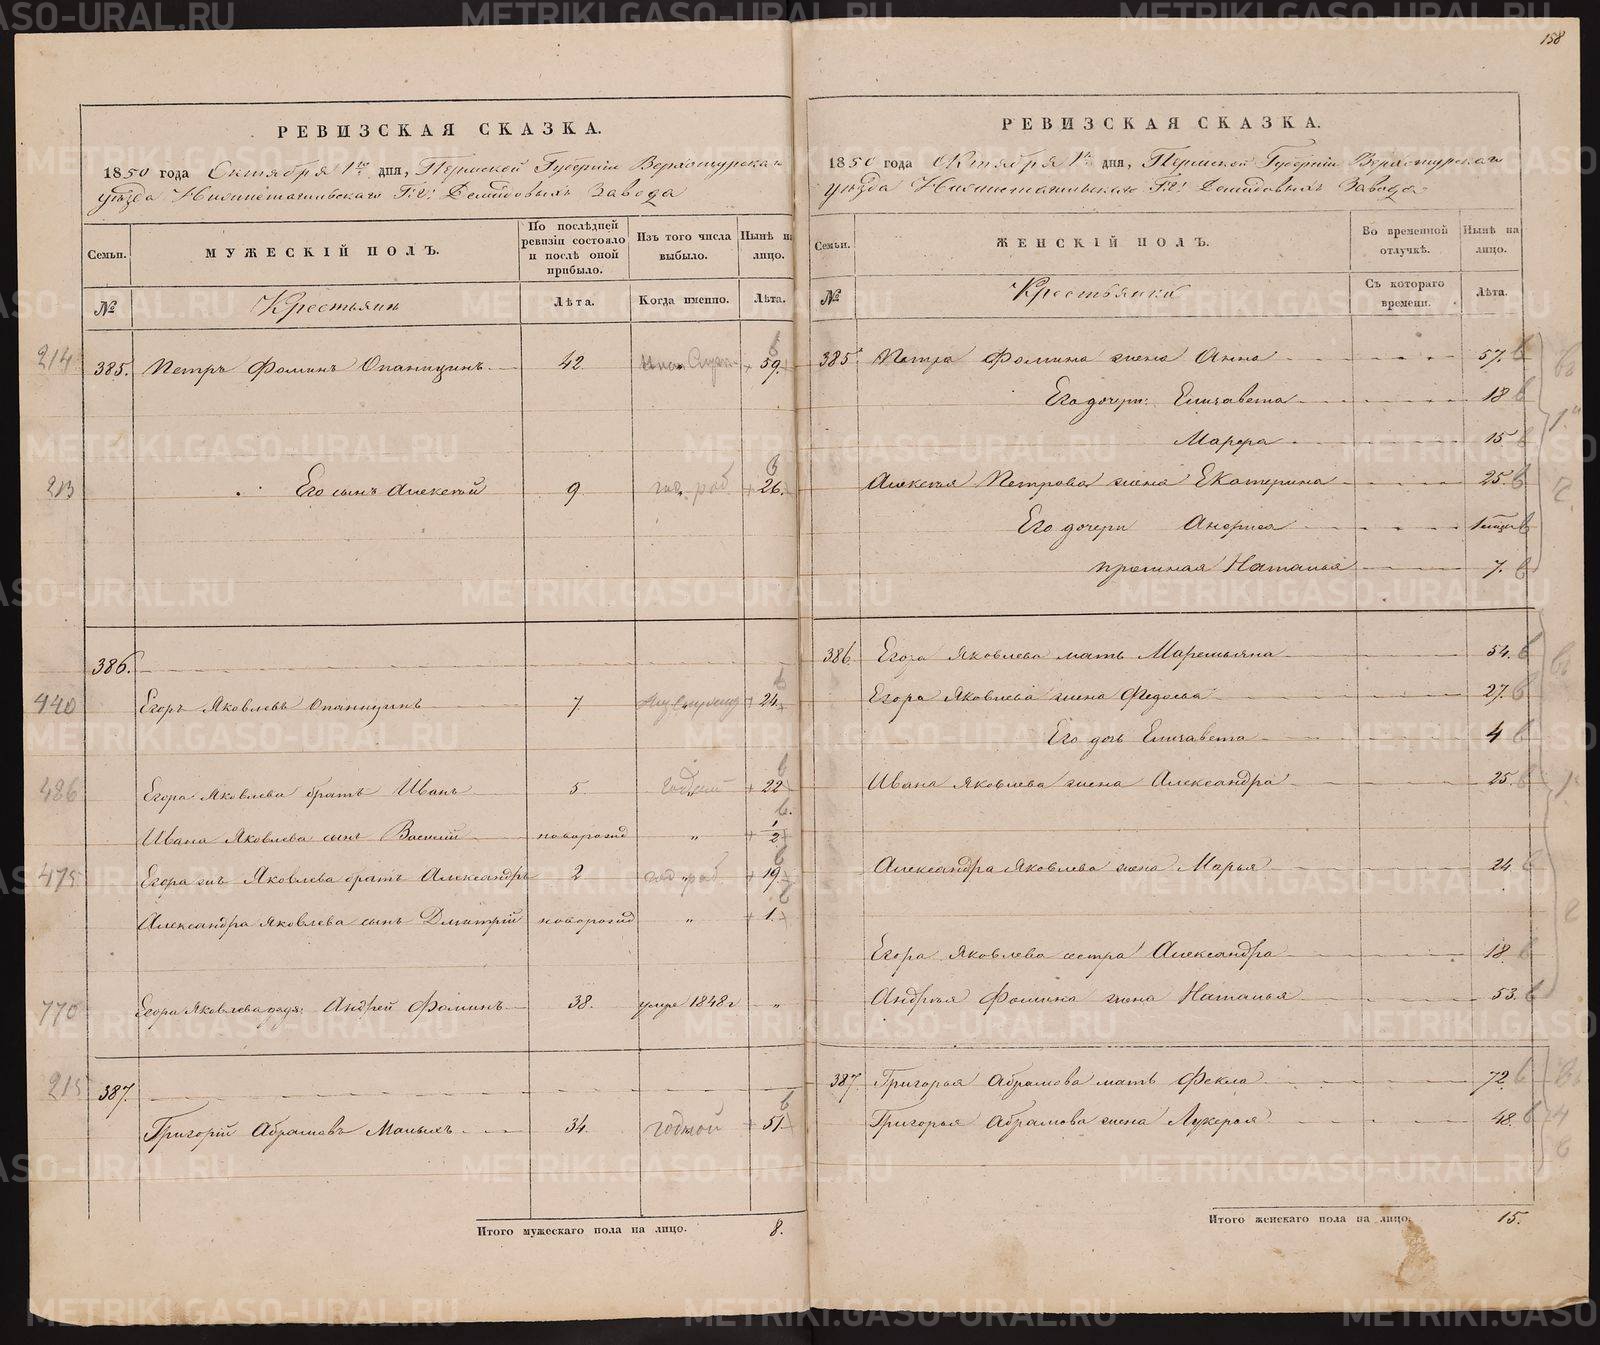 158
РЕВИЗСКАЯ СКАЗКА.
1850 года Октября 1го дня, Пермской Губернии Верхотурскаго
уѣзда Нижнетагильскаго Г.г. Демидовыхъ Завода
Семьи.
МУЖЕСКІЙ ПОЛЪ.
По послѣдней ревизіи состояло и послѣ оной прибыло.
Изъ того числа выбыло.
Нынѣ на лицо.
№
Крестьянъ
Лѣта.
Когда именно.
Лѣта.
214 385. Петръ Фоминъ Опаницинъ 42. 59.
213 Его сынъ Алексѣй 9 год. раб. 26.
386.
440 Егоръ Яковлевъ Опаницинъ 7 24.
486 Егора Яковлева братъ Иванъ 5. годной 22
Ивана Яковлева сынъ Василій новорожд „ 1/2
475 Егора жъ Яковлева братъ Александръ 2 год. раб. 19.
Александра Яковлева сынъ Дмитрій новорожд „ 1.
770 Егора Яковлева дядя: Андрей Фоминъ 38. умре 1848 г „
215 387.
Григорій Абрамовъ Малыхъ 34. годной 51.
Итого мужескаго пола на лицо. 8.
РЕВИЗСКАЯ СКАЗКА.
1850 года Октября 1го дня, Пермской Губерніи Верхотурскаго
уѣзда Нижнетагильскаго Г.г. Демидовыхъ Завода
Семьи.
ЖЕНСКІЙ ПОЛЪ.
Во временной отлучкѣ.
Нынѣ на лицо.
№
Крестьянки
Съ котораго времени.
Лѣта.
385 Петра Фомина жена Анна 57.
Его дочери: Елизавета 18
Марфа 15
Алексѣя Петрова жена Екатерина 25.
Его дочери Анфиса
Наталья 7.
386. Егора Яковлева мать Маремьяна 54.
Егора Яковлева жена Федосья 27.
Его дочь Елизавета 4
Ивана Яковлева жена Александра 25.
Александра Яковлева жена Марья 24.
Егора Яковлева сестра Александра 18.
Андрея Фомина жена Наталья 53.
387. Григорья Абрамова мать Фекла 72.
Григорья Абрамова жена Лукерья 48.
Итого женскаго пола на лицо. 15.
METRIKI.GASO-URAL.RU